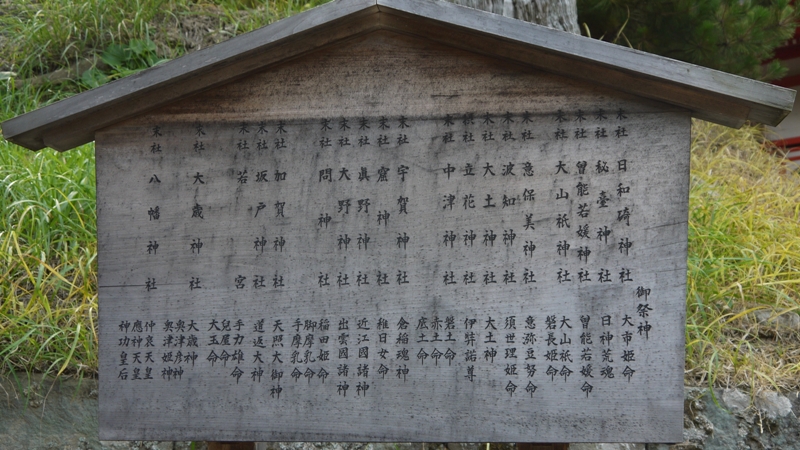 末社 日和碕神社
御祭神
大市姫命
末社 秘臺神社
日神荒魂
末社 曽能若媛神社
曽能若媛命
末社 大山祇神社
大山祇命
磐長姫命
末社 意保美神社
意弥豆努命
末社 波知神社
須世理姫命
末社 大土神社
大土神
末社 立花神社
伊弉諾尊
末社 中津神社
磐土命
赤土命
底土命
末社 宇賀神社
倉稲魂神
末社 窟神社
稚日女命
末社 眞野神社
近江國諸神
末社 大野神社
出雲國諸神
末社 問神社
稲田姫命
脚摩乳命
手摩乳命
末社 加賀神社
天照大御神
末社 坂戸神社
道返大神
末社 若宮
手力雄命
兒屋命
大玉命
末社 大歳神社
大歳神
奥津彦神
奥津姫神
末社 八幡神社
仲哀天皇
應神天皇
神功皇后